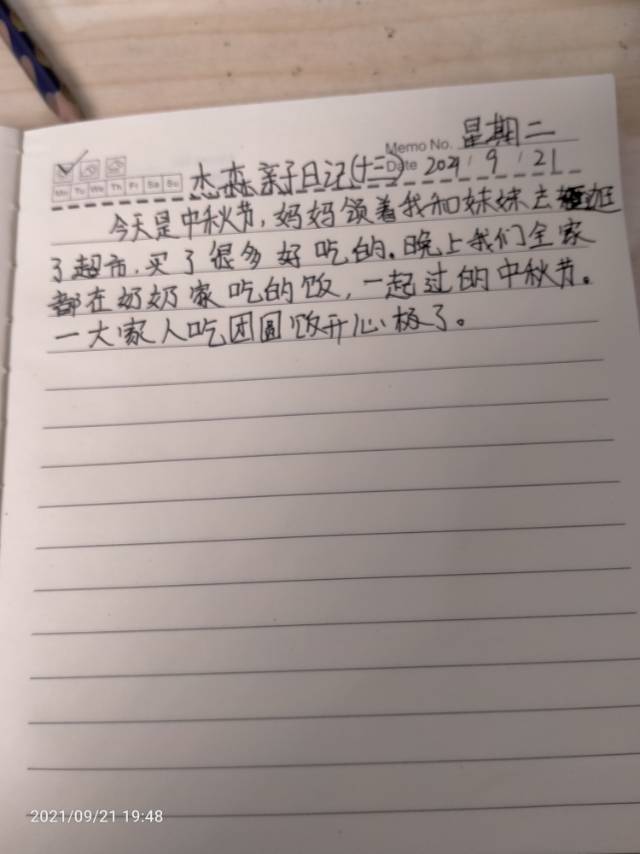 Memo No. 星期二
Mo Tu We Th Fr Sa Su
Date 2021 / 9 / 21
杰森亲子日记(十三)
今天是中秋节,妈妈领着我和妹妹去逛
了超市,买了很多好吃的.晚上我们全家
都在奶奶家吃的饭,一起过的中秋节。
一大家人吃团圆饭开心极了。
2021/09/21 19:48